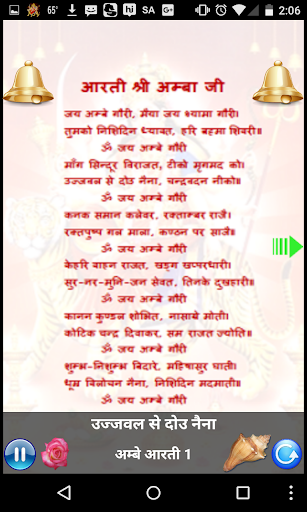 SA G+ 2:06
आरती श्री अम्बा जी
जय अम्बे गौरी, मैया जय श्यामा गौरी।
तुमको निशिदिन ध्यावत, हरि बह्मा शिवरी॥
ॐ जय अम्बे गौरी
माँग सिन्दूर विराजत, टीको मृगमद को।
उज्जवल से दोउ नैना, चन्द्रबदन नीको॥
ॐ जय अम्बे गौरी
कनक समान कलेवर, रक्ताम्बर राजै।
रक्तपुष्प गल माला, कण्ठन पर साजै॥
ॐ जय अम्बे गौरी
केहरि वाहन राजत, खड्ग खप्परधारी।
सुर-नर-मुनि-जन सेवत, तिनके दुखहारी॥
ॐ जय अम्बे गौरी
कानन कुण्डल शोभित, नासाग्रे मोती।
कोटिक चन्द्र दिवाकर, सम राजत ज्योति॥
ॐ जय अम्बे गौरी
शुम्भ-निशुम्भ बिदारे, महिषासुर घाती।
धूम्र विलोचन नैना, निशिदिन मदमाती॥
ॐ जय अम्बे गौरी
उज्जवल से दोउ नैना
अम्बे आरती 1